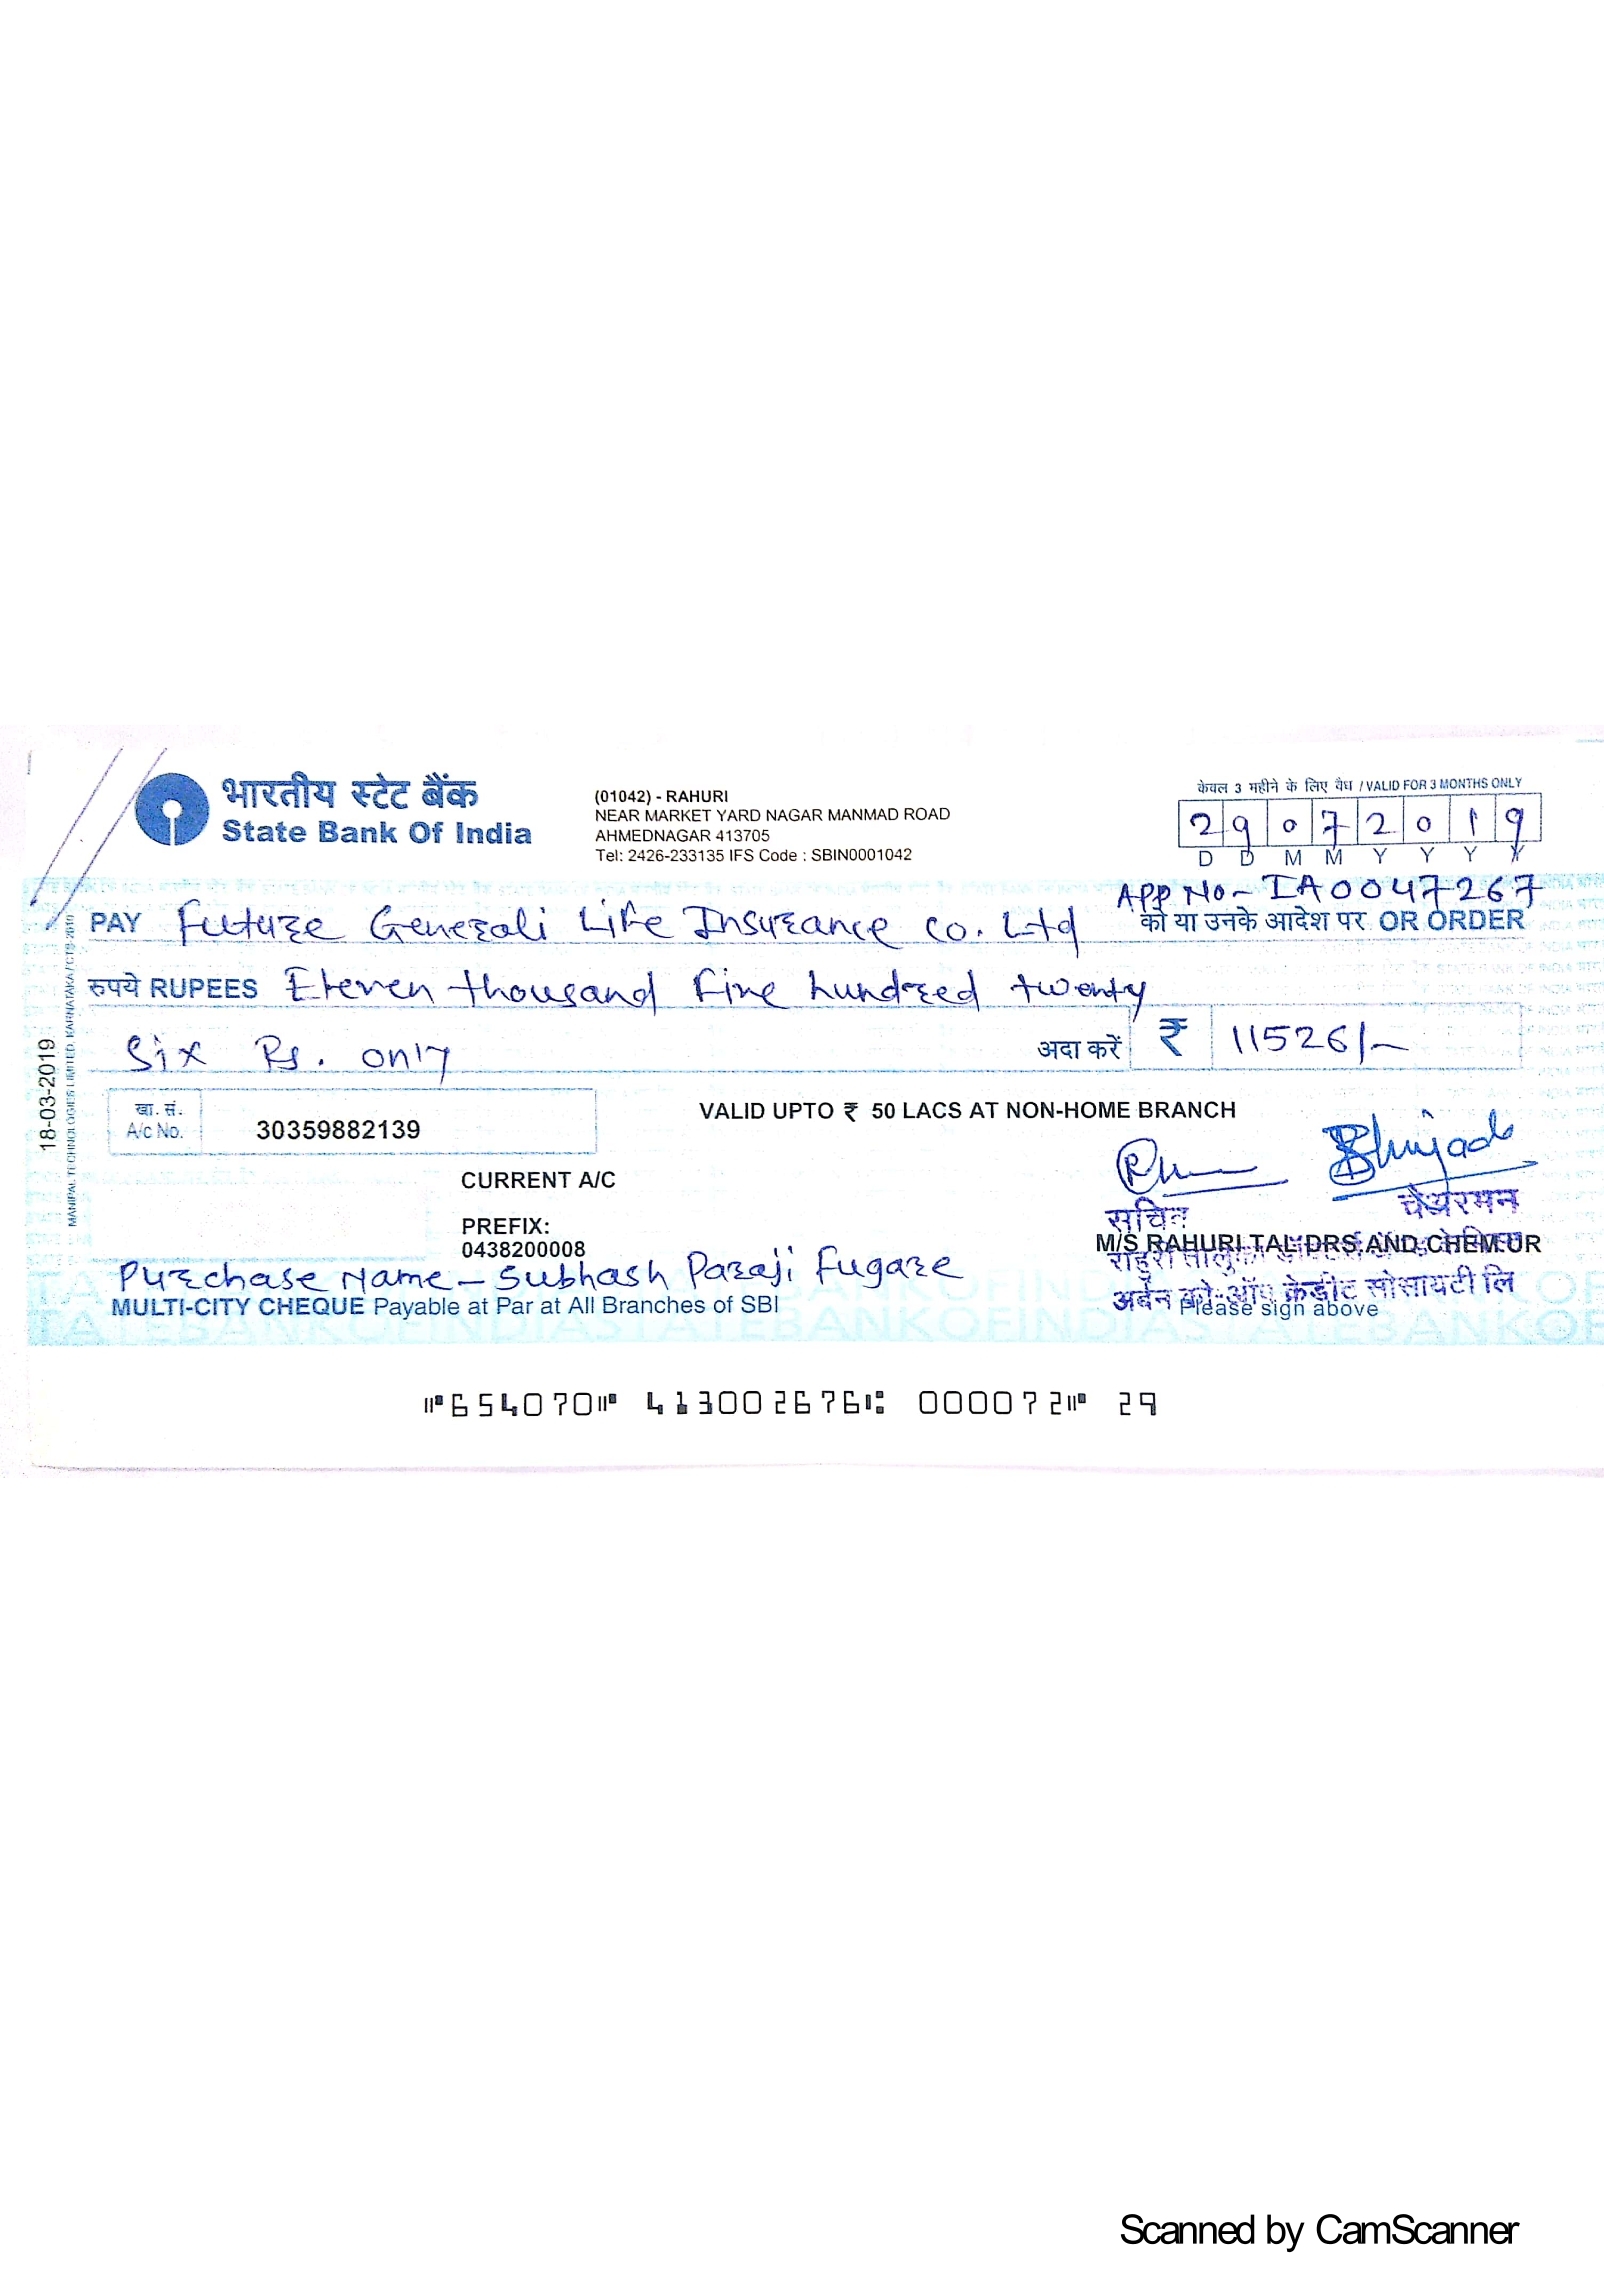 भारतीय स्टेट बैंक
State Bank Of India
(01042) - RAHURI
NEAR MARKET YARD NAGAR MANMAD ROAD
AHMEDNAGAR 413705
Tel: 2426-233135 IFS Code : SBIN0001042
केवल 3 महीने के लिए वैध / VALID FOR 3 MONTHS ONLY
29072019
D D M M Y Y Y Y
APP NO - IA0047267
PAY Future Generali Life Insurance co. Ltd को या उनके आदेश पर OR ORDER
रुपये RUPEES Eleven thousand five hundred twenty
Six Rs. only अदा करें ₹ 11526/-
खा. सं.
A/c No. 30359882139
VALID UPTO ₹ 50 LACS AT NON-HOME BRANCH
CURRENT A/C
PREFIX:
0438200008
सचिव चेअरमन
M/S RAHURI TAL DRS AND CHEM UR
राहुरी तालुका
अर्बन को-ऑप क्रेडीट सोसायटी लि
Please sign above
Purchase Name - Subhash Paraji Fugare
MULTI-CITY CHEQUE Payable at Par at All Branches of SBI
18-03-2019
MANIPAL TECHNOLOGIES LIMITED, KARNATAKA / CTS-2010
⑈654070⑈ 413002676⑆ 000072⑈ 29
Scanned by CamScanner